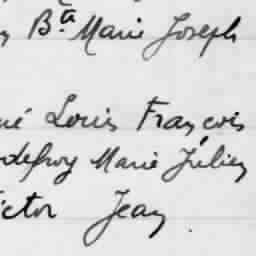 Bta Marie Joseph
né Louis François
odefroy Marie Julien
ictor Jean